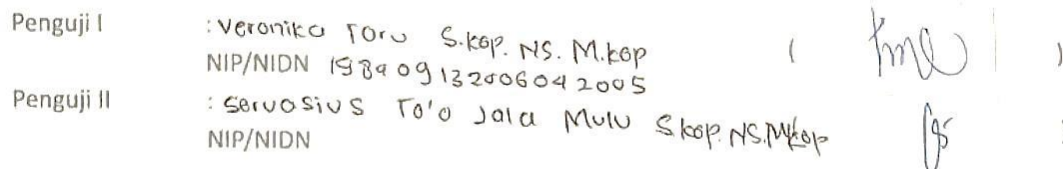 Penguji I : Veronika Toru S.kep. NS. M.kep ( )
NIP/NIDN 198909132006042005
Penguji II : Servosius To'o Jala Mulu S.kep. NS. M.kep
NIP/NIDN